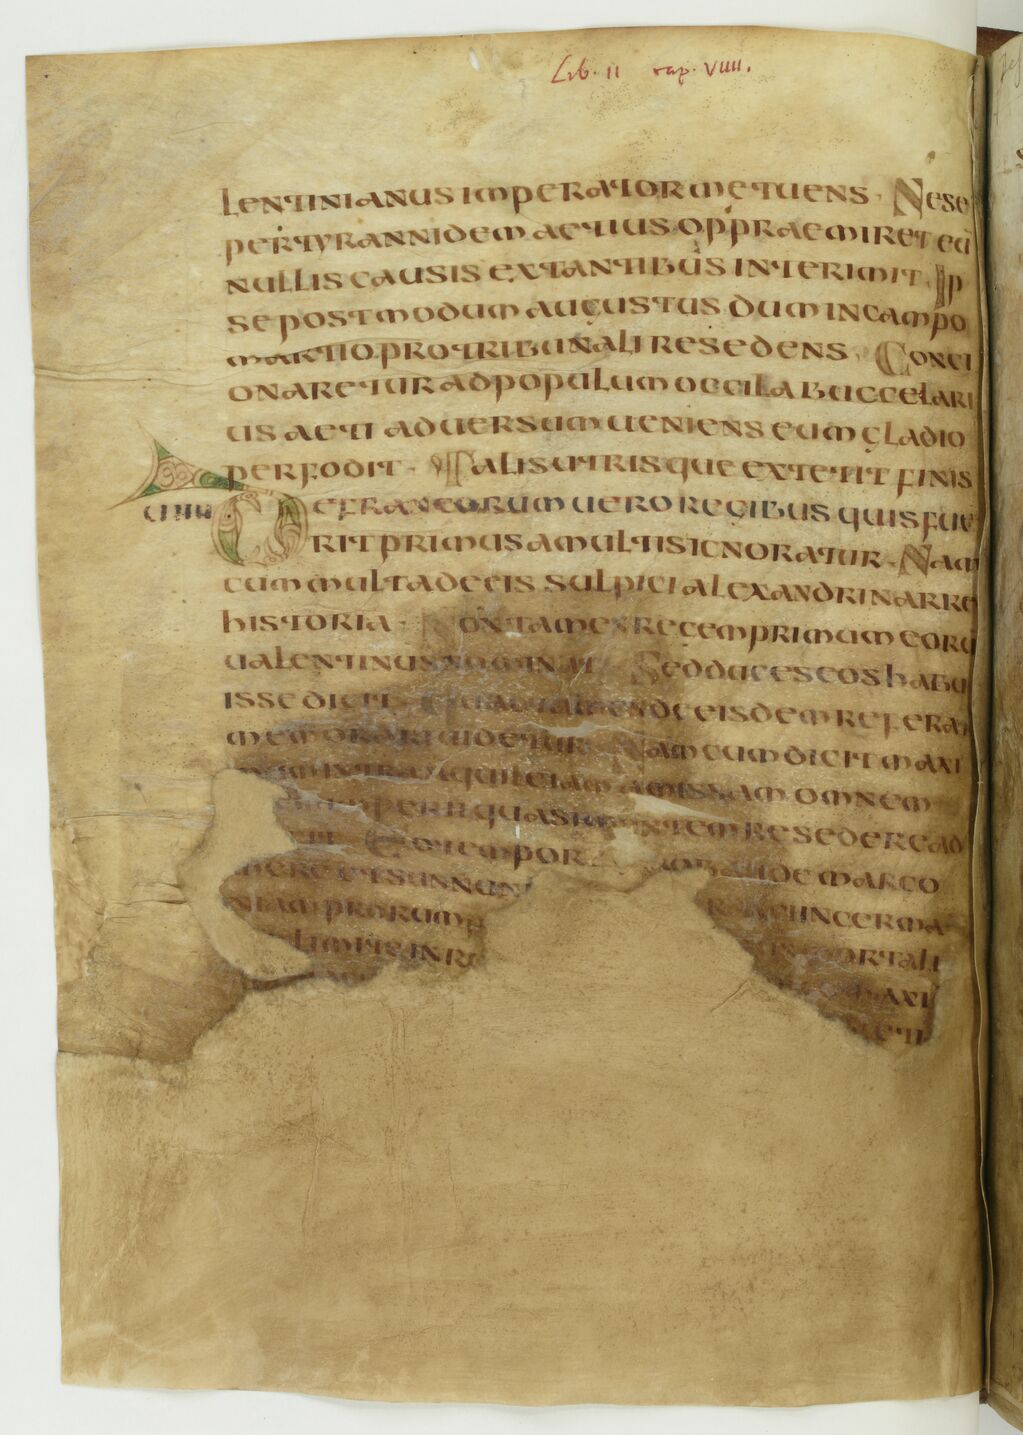 Lib. II cap. VIIII.
lentinianus imperator metuens · Nese
per tyrannidem aetius oppraemiret eū
nullis causis extantibus interimit · Ip
se postmodum augustus dum incampo
martio pro tribunali resedens · Conci
onaretur ad populum occila buccelari
us aeti adversum ueniens eum gladio
perfodit · Talis utrisque extetit finis
uiiii De francorum uero regibus quis fue
rit primus a multis ignoratur · Nam
cum multa de eis sulpici alexandri narre
historia · Non tamen regem primum eoru
ualentinus nominat Sed duces eos habu
isse dicit · de eisdem refera
memorari uidetur Nam cum dicit maxi
aquileiam amissam omnem
imperii quasi mentem resedere ad
Eo tempor de marco
mere et sunnon
niam prorump incerma
limite in mortali
maxi